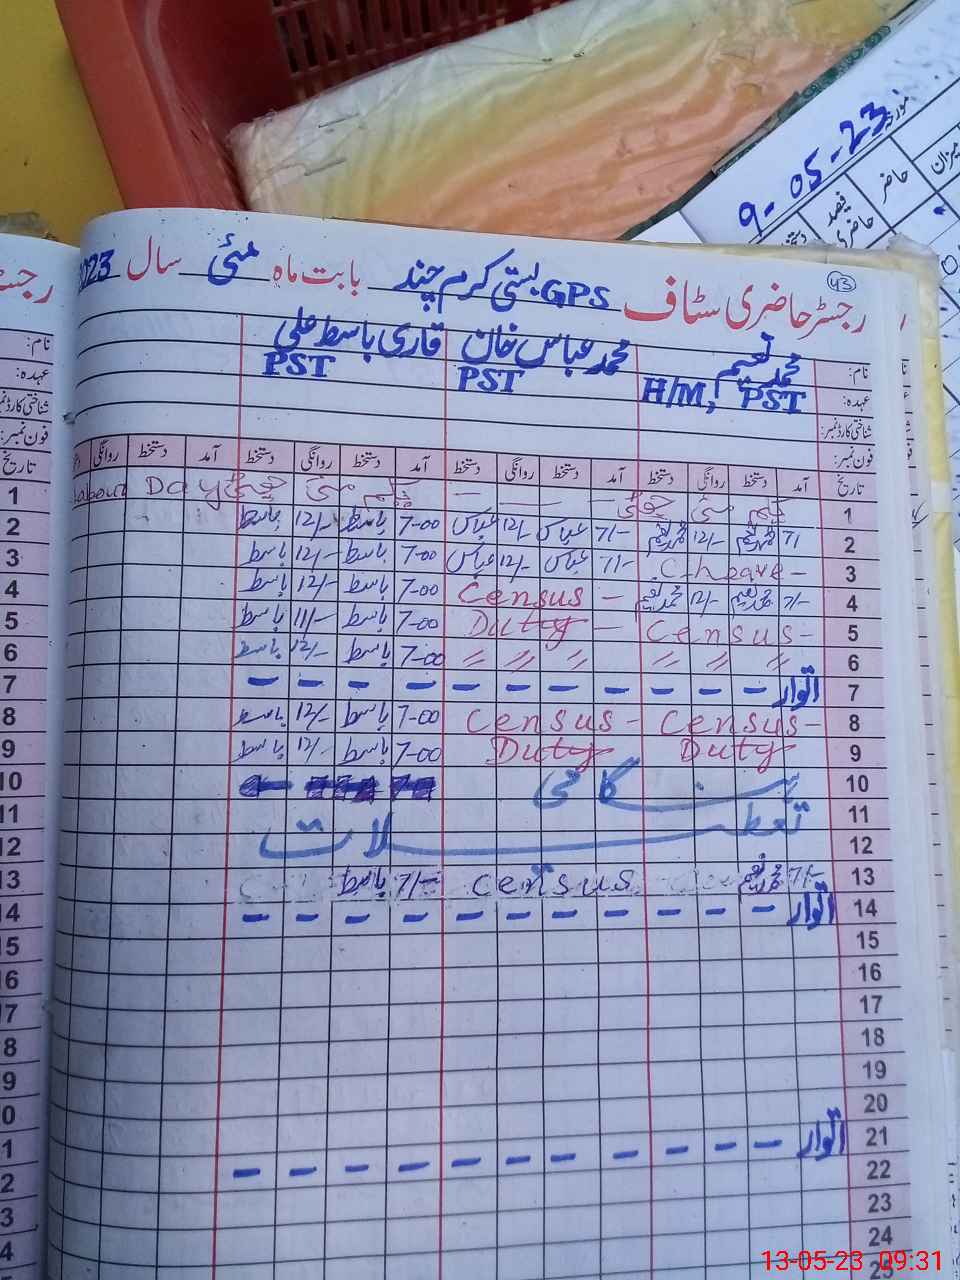 9-05-23
مورخہ
میزان
حاضر
فیصد حاضری
دستخط
43
رجسٹر حاضری سٹاف GPS بستی کرم چند بابت ماہ مئی سال 2023
نام: محمد نعیم محمد عباس خان قاری باسط علی
عہدہ: H/M, PST PST PST
شناختی کارڈ نمبر:
فون نمبر:
تاریخ آمد دستخط روانگی دستخط آمد دستخط روانگی دستخط آمد دستخط روانگی دستخط آمد دستخط روانگی
1 یکم مئی چھٹی — — — — یکم مئی چھٹی Labour Day
2 7/ محمد نعیم 12/- محمد نعیم 7/- عباس 12/- عباس 7-00 باسط 12/- باسط
3 C-heave- 7/- عباس 12/- عباس 7-00 باسط 12/- باسط
4 7/- محمد نعیم 12/- محمد نعیم Census - 7-00 باسط 12/- باسط
5 Census- Duty - 7-00 باسط 11/- باسط
6 〃 〃 〃 〃 〃 〃 7-00 باسط 12/- باسط
7 اتوار — — — — — — — — — — —
8 Census- Census - 7-00 باسط 12/- باسط
9 Duty Duty 7-00 باسط 12/- باسط
10
11 تعطیلات
12
13 7/- محمد نعیم Census 7/- باسط
14 اتوار — — — — — — — — — — —
15
16
17
18
19
20
21 اتوار — — — — — — — — — — —
22
23
24
25
13-05-23 09:31